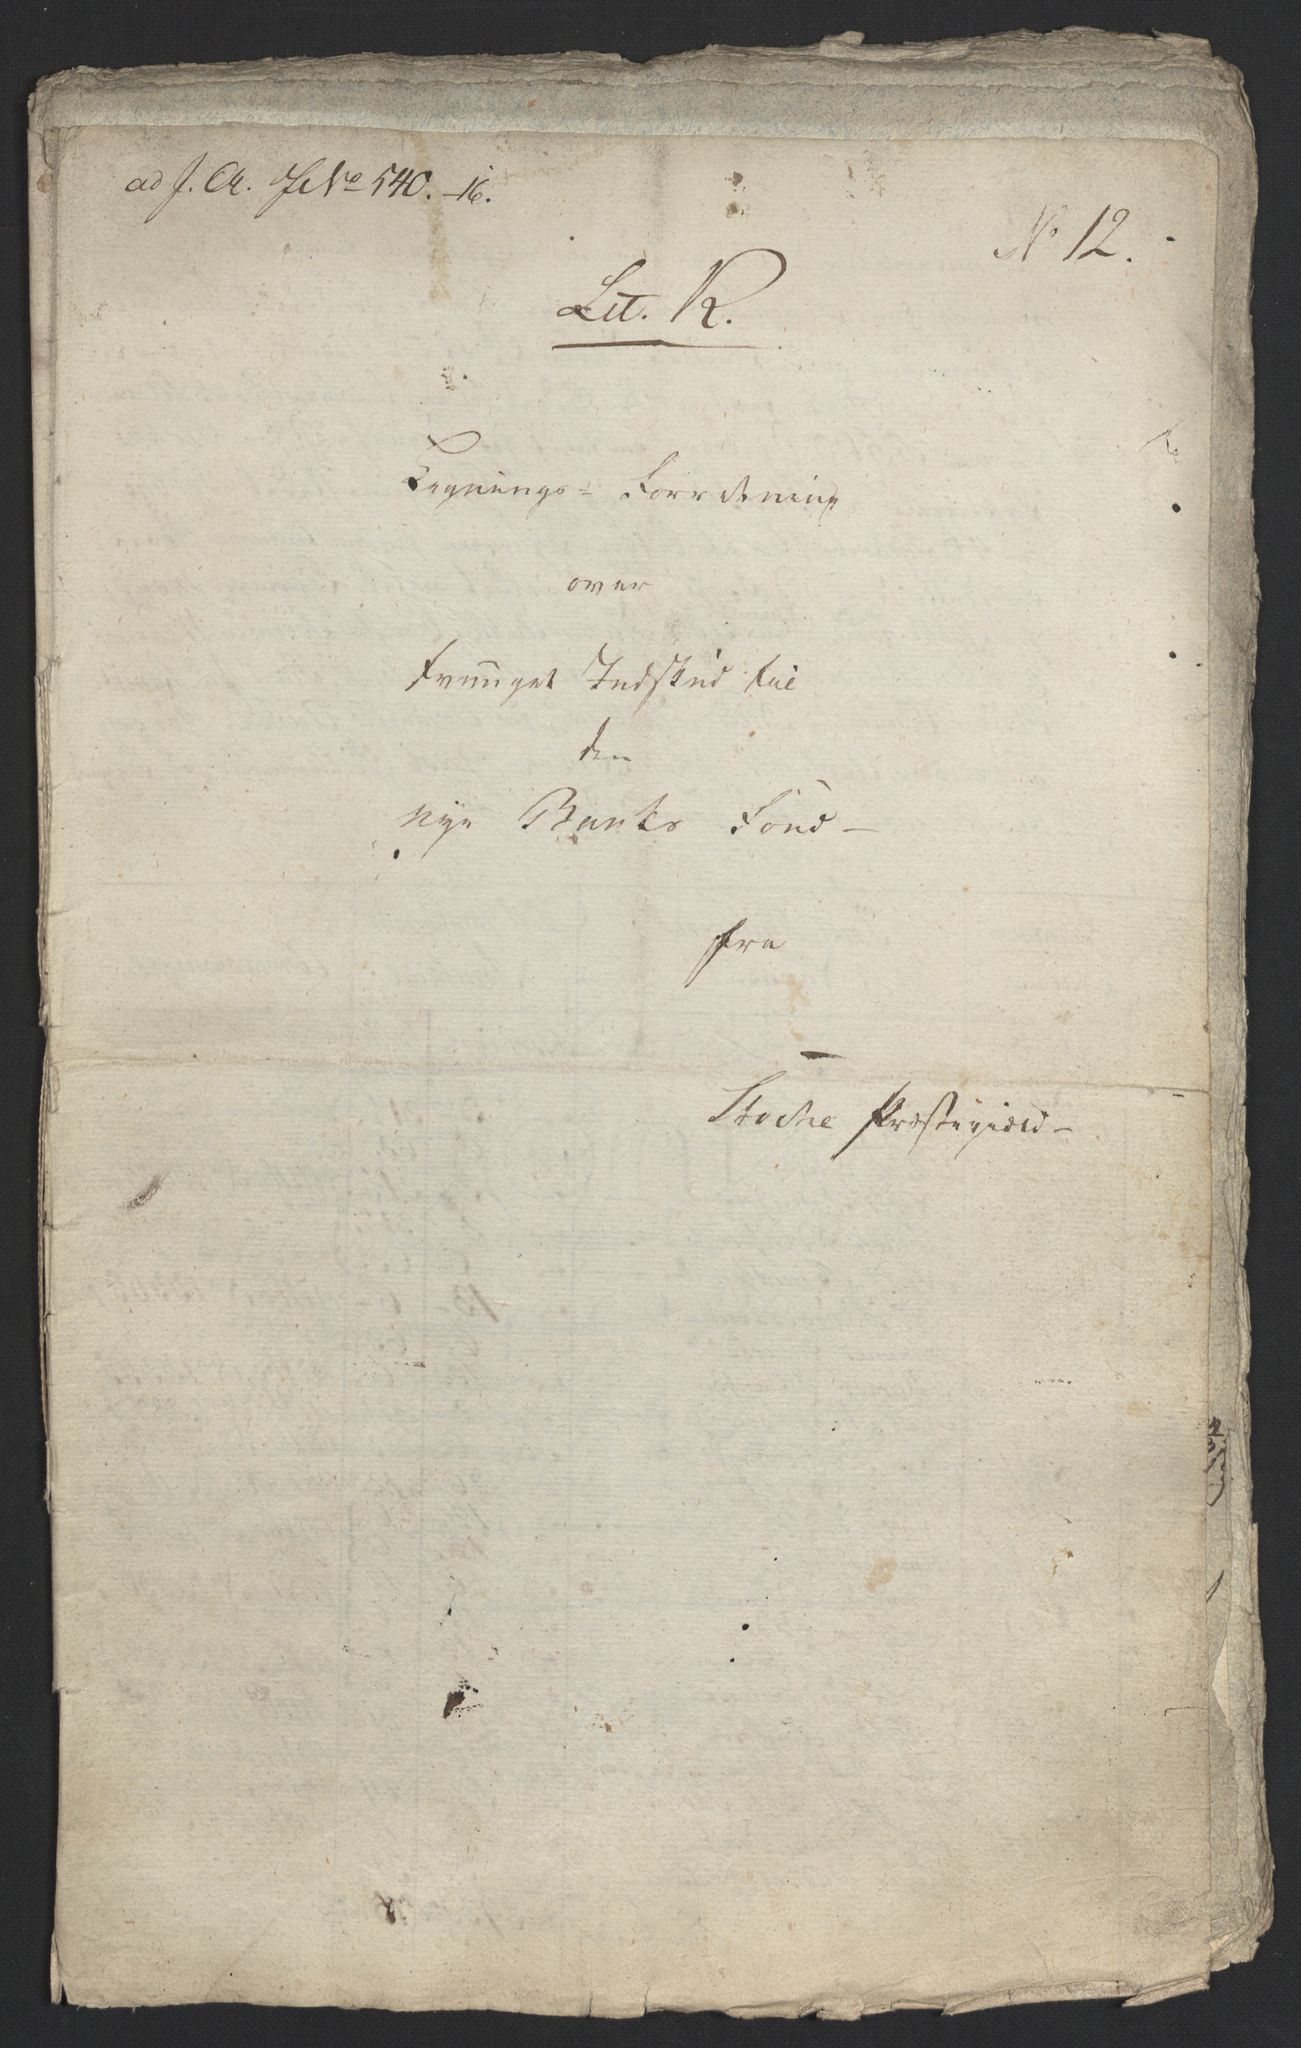 ad J. A. J No 540.-16.
No 12.
Litr. R.
Lignings- Forretning
over
tvunget Indskud til
den
nye Banks Fond-
fra
Stocke Præstegield-